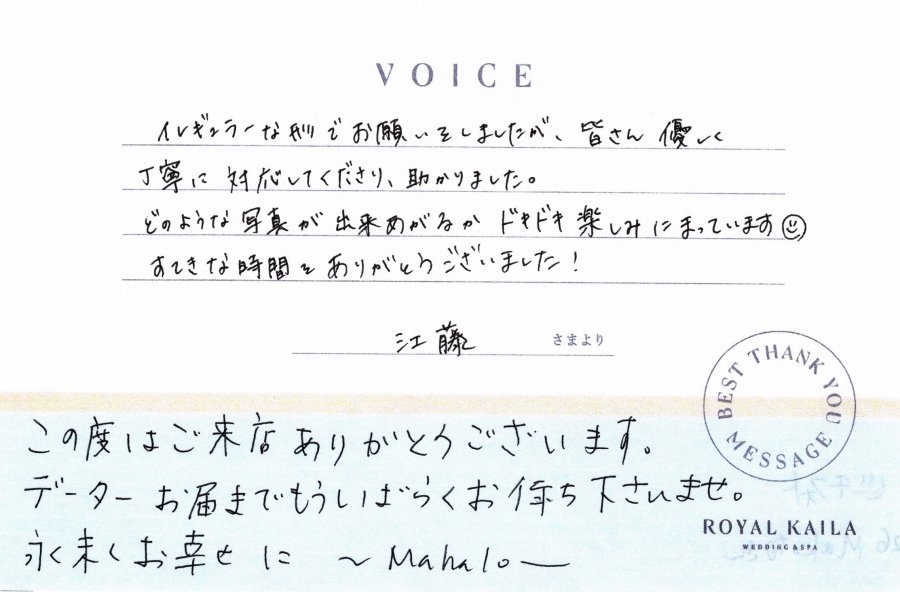 VOICE
イレギュラーな形でお願いをしましたが、皆さん 優しく
丁寧に 対応してくださり、助かりました。
どのような写真が出来あがるか ドキドキ楽しみにまっています
すてきな時間をありがとうございました!
江藤 さまより
BEST THANK YOU MESSAGE
この度はご来店ありがとうございます。
データー お届までもうしばらくお待ち下さいませ。
永く末くお幸せに 〜Mahalo〜
ROYAL KAILA
WEDDING & SPA